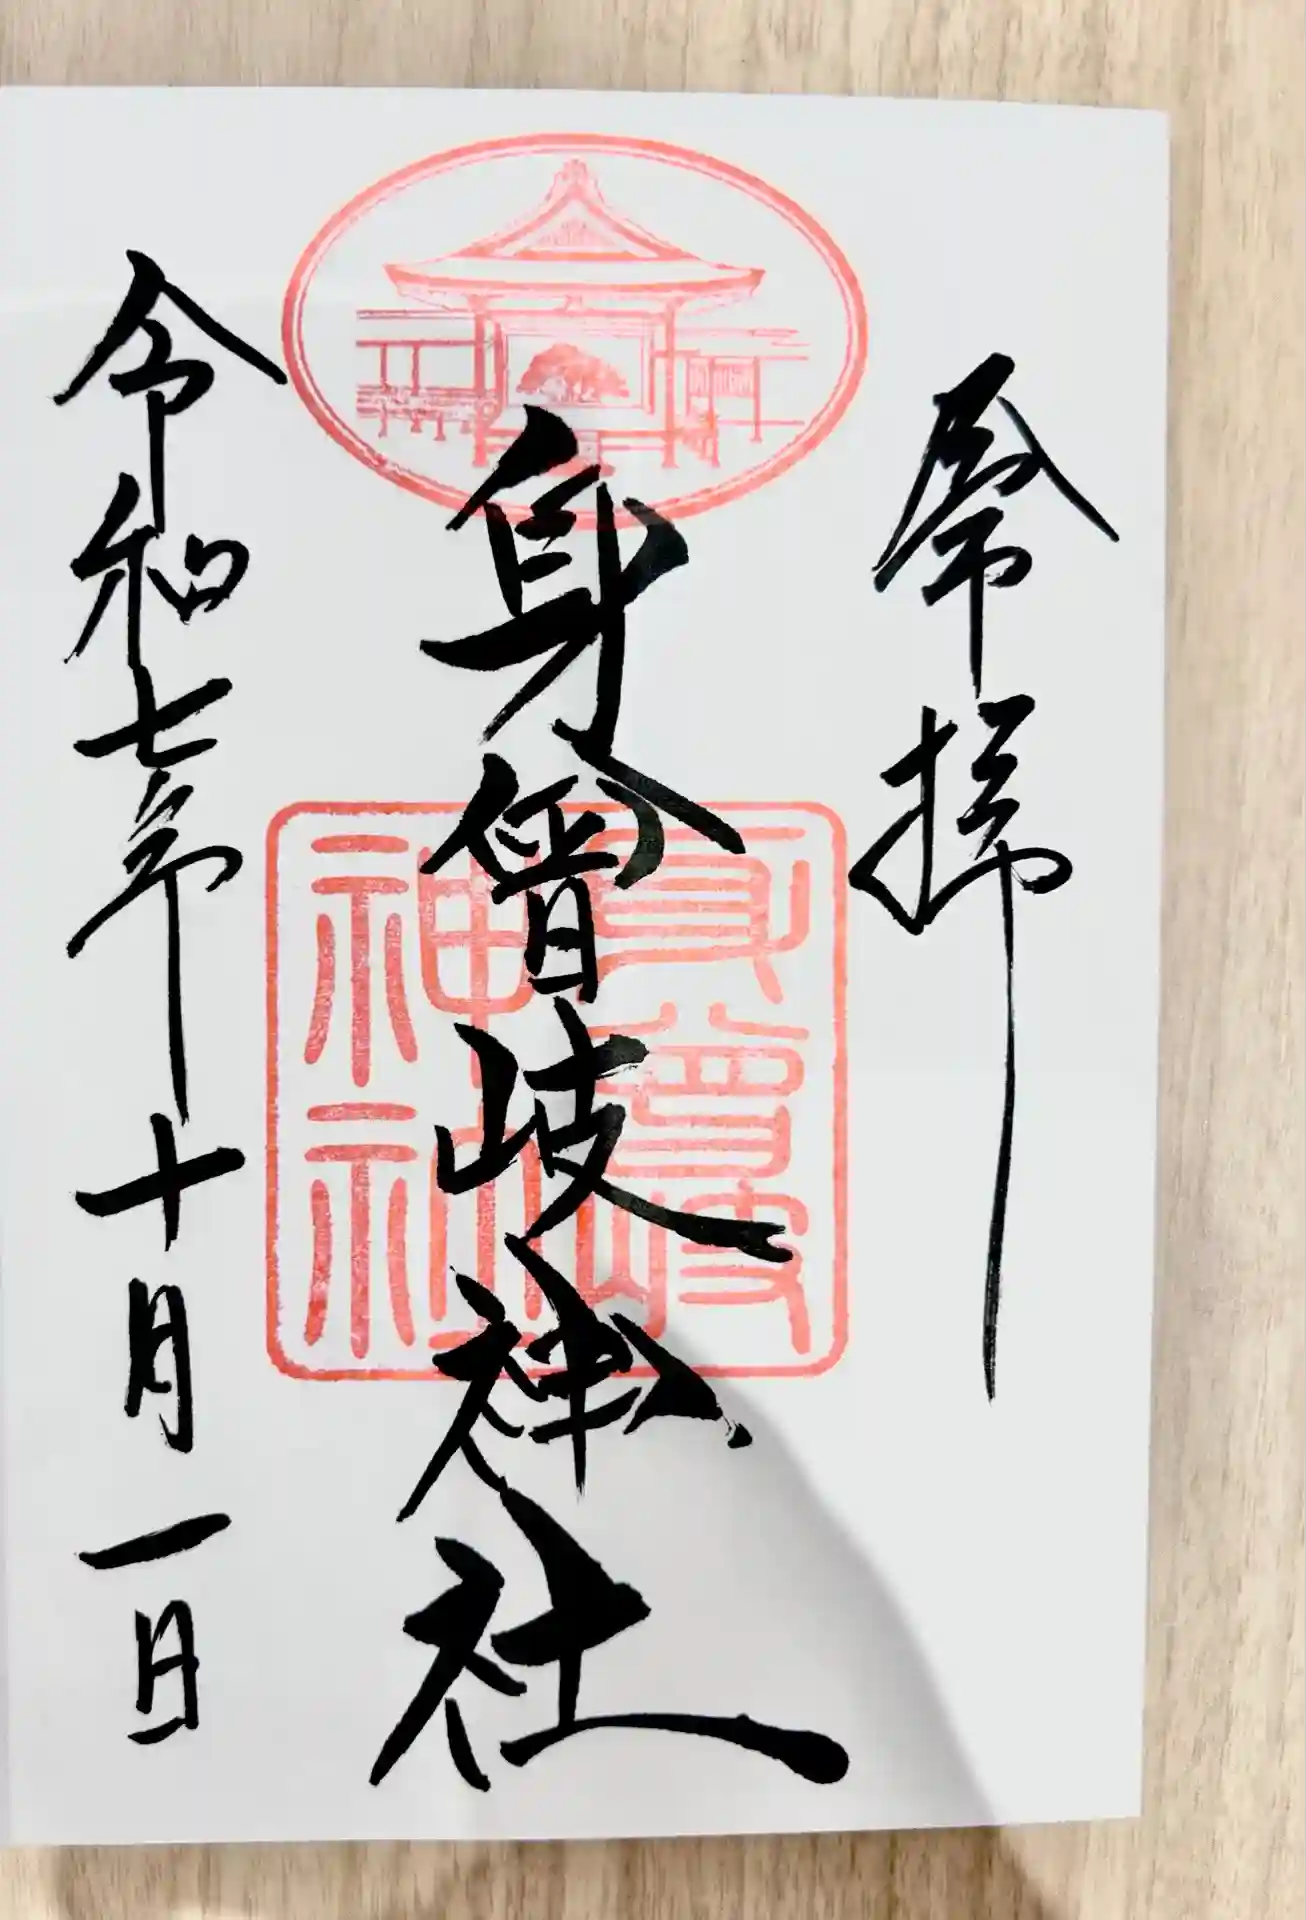 拝
身曾岐神社
身曾岐神社
令和七年十月一日